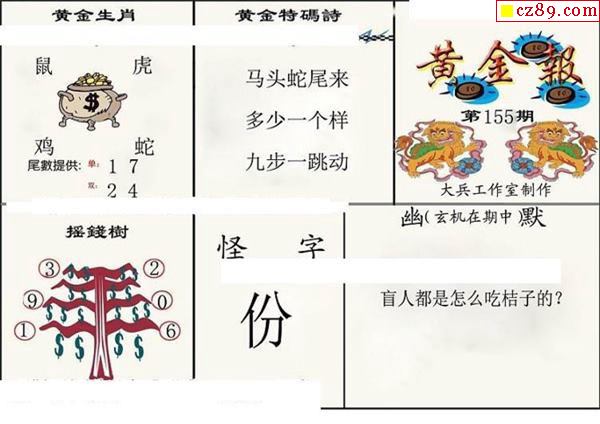 cz89.com
黄金生肖
鼠 虎
$
鸡 蛇
尾數提供: 单: 1 7
双: 2 4
黄金特碼詩
马头蛇尾来
多少一个样
九步一跳动
黄金報
第155期
大兵工作室制作
摇錢樹
3 2
9 0
1 6
$ $ $ $ $ $ $ $
怪 字
份
幽(玄机在期中)默
盲人都是怎么吃桔子的?